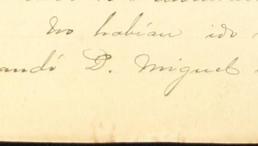 No habían ido
andó D. Miguel